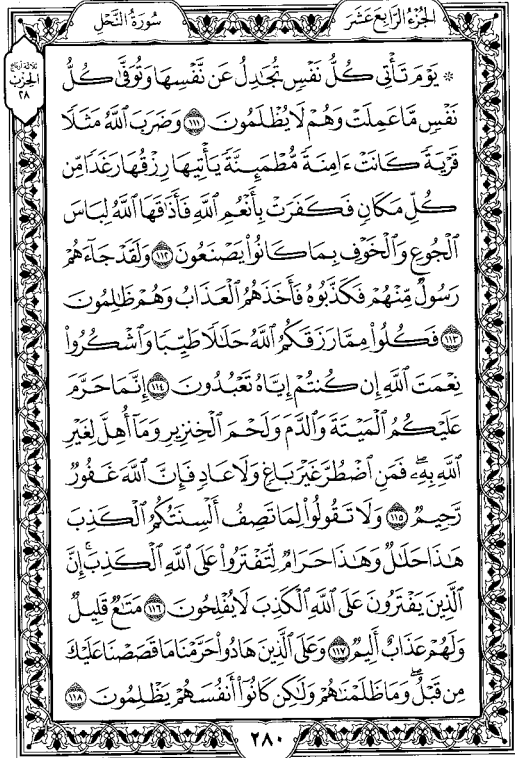 الجزء الرابع عشر
سورة النحل
ثلاثة أرباع
الحزب
٢٨
۞ يَوْمَ تَأْتِي كُلُّ نَفْسٍ تُجَٰدِلُ عَن نَّفْسِهَا وَتُوَفَّىٰ كُلُّ
نَفْسٍ مَّا عَمِلَتْ وَهُمْ لَا يُظْلَمُونَ ١١١ وَضَرَبَ ٱللَّهُ مَثَلًا
قَرْيَةً كَانَتْ ءَامِنَةً مُّطْمَئِنَّةً يَأْتِيهَا رِزْقُهَا رَغَدًا مِّن
كُلِّ مَكَانٍ فَكَفَرَتْ بِأَنْعُمِ ٱللَّهِ فَأَذَٰقَهَا ٱللَّهُ لِبَاسَ
ٱلْجُوعِ وَٱلْخَوْفِ بِمَا كَانُوا۟ يَصْنَعُونَ ١١٢ وَلَقَدْ جَآءَهُمْ
رَسُولٌ مِّنْهُمْ فَكَذَّبُوهُ فَأَخَذَهُمُ ٱلْعَذَابُ وَهُمْ ظَٰلِمُونَ
١١٣ فَكُلُوا۟ مِمَّا رَزَقَكُمُ ٱللَّهُ حَلَٰلًا طَيِّبًا وَٱشْكُرُوا۟
نِعْمَتَ ٱللَّهِ إِن كُنتُمْ إِيَّاهُ تَعْبُدُونَ ١١٤ إِنَّمَا حَرَّمَ
عَلَيْكُمُ ٱلْمَيْتَةَ وَٱلدَّمَ وَلَحْمَ ٱلْخِنزِيرِ وَمَآ أُهِلَّ لِغَيْرِ
ٱللَّهِ بِهِۦ ۖ فَمَنِ ٱضْطُرَّ غَيْرَ بَاغٍ وَلَا عَادٍ فَإِنَّ ٱللَّهَ غَفُورٌ
رَّحِيمٌ ١١٥ وَلَا تَقُولُوا۟ لِمَا تَصِفُ أَلْسِنَتُكُمُ ٱلْكَذِبَ
هَٰذَا حَلَٰلٌ وَهَٰذَا حَرَامٌ لِّتَفْتَرُوا۟ عَلَى ٱللَّهِ ٱلْكَذِبَ ۚ إِنَّ
ٱلَّذِينَ يَفْتَرُونَ عَلَى ٱللَّهِ ٱلْكَذِبَ لَا يُفْلِحُونَ ١١٦ مَتَٰعٌ قَلِيلٌ
وَلَهُمْ عَذَابٌ أَلِيمٌ ١١٧ وَعَلَى ٱلَّذِينَ هَادُوا۟ حَرَّمْنَا مَا قَصَصْنَا عَلَيْكَ
مِن قَبْلُ ۖ وَمَا ظَلَمْنَٰهُمْ وَلَٰكِن كَانُوٓا۟ أَنفُسَهُمْ يَظْلِمُونَ ١١٨
٢٨٠